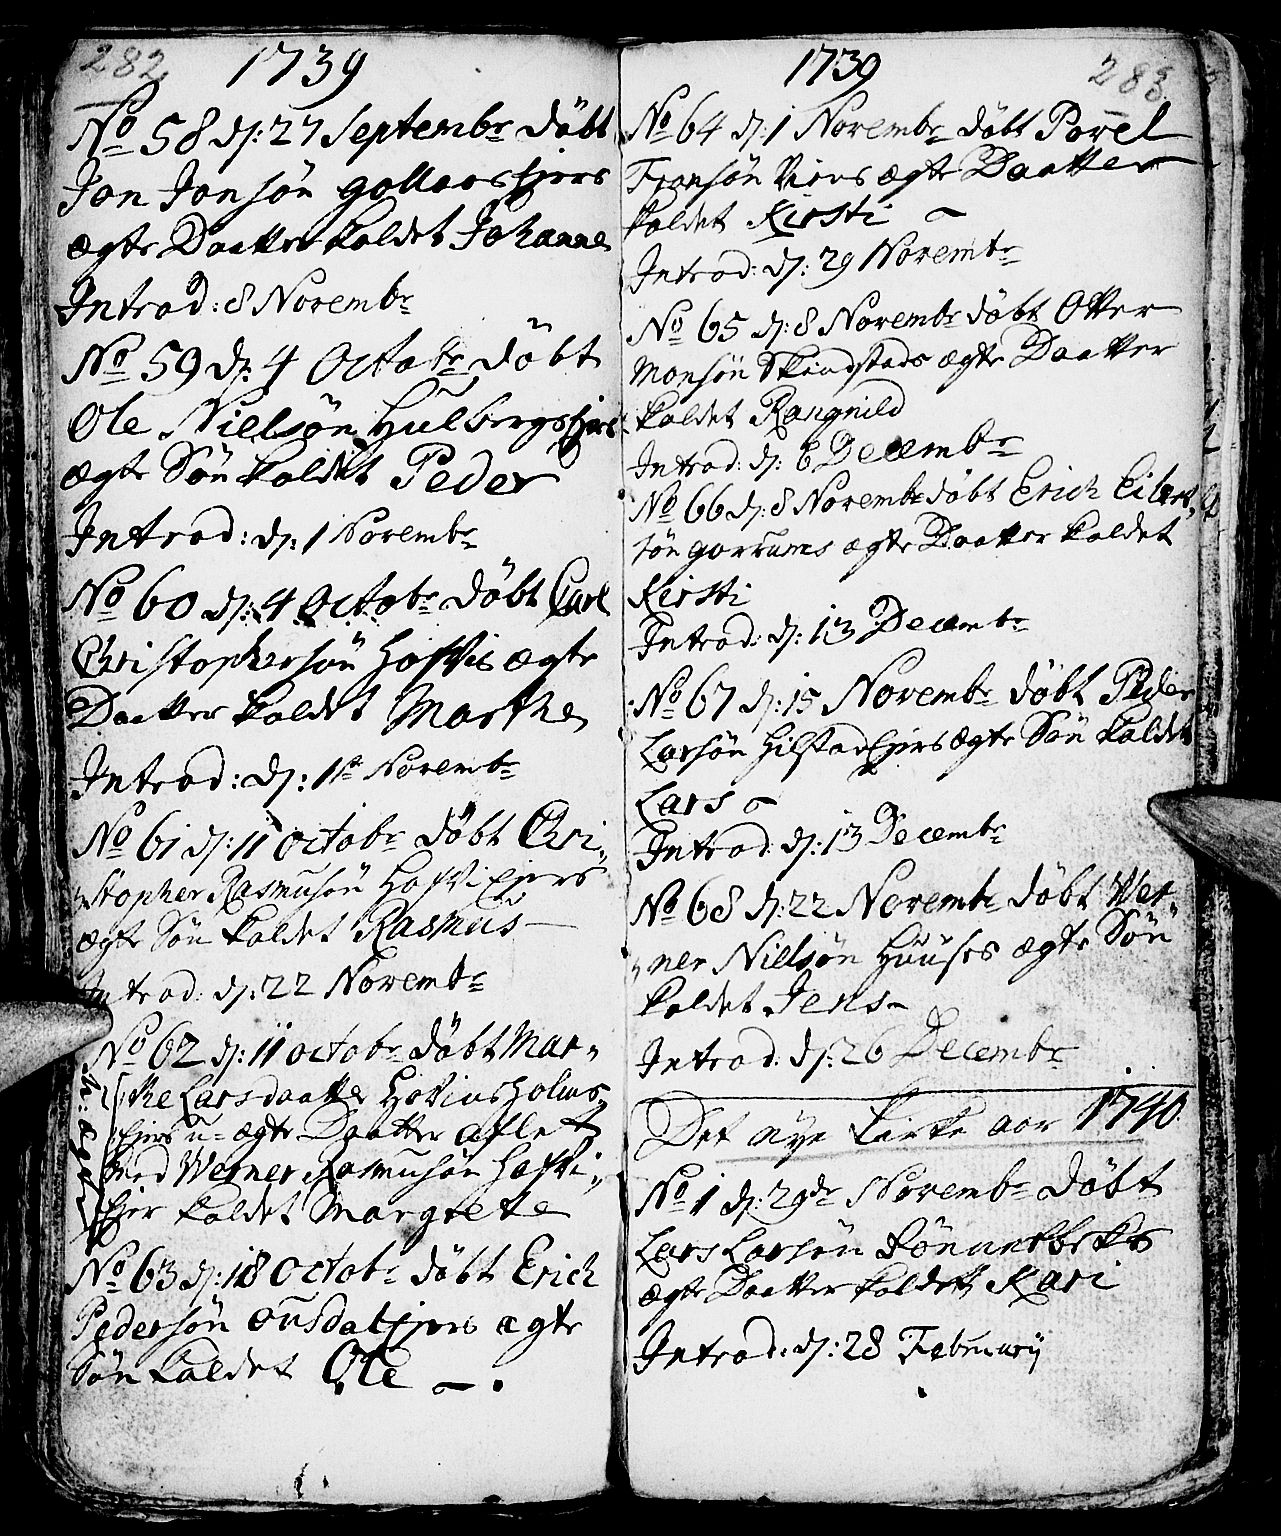 282
1739
No 58 d: 27 Septembr döbt
Jon Jonsön gollaas Ejers
ægte Daatter kaldet Johanne
Introd: 8 Novembr
No 59 d: 4 Octobr döbt
Ole Nielsön Hulbergs Ejers
ægte Sön kaldet Peder
Introd: d: 1 Novembr
No 60 d: 4 Octobr döbt Carl
Christophersön Hoffvis ægte
Daatter kaldet Marthe
Introd: d: 1st Novembr
No 61 d: 11 Octobr döbt Chri-
stopher Rasmusön Hoffvi Ejers
ægte Sön kaldet Rasmus
Introd: d: 22 Novembr
No 62 d: 11 octobr döbt Mar-
the Larsdaatter Hovins holms
Ejers u-ægte Daatter aflet
med Werner Rasmusön Hoffvi-
Ejer kaldet Margrete
No 63 d: 18 Octobr döbt Erich
Pedersön ousdal Ejers ægte
Sön kaldet Ole
1739
283
No 64 d: 1 Novembr döbt Povel
Fransön Viens ægte Daatter
kaldet Kirsti
Introd: d: 29 Novembr
No 65 d: 8 Novembr döbt Otter
Monsön Skindstads ægte Daatter
kaldet Rangnild
Introd: d: 6 Decembr
No 66 d: 8 Novembr döbt Erich Eilert-
sön gorrums ægte Daatter kaldet
Kirsti
Introd: d: 13 Decembr
No 67 d: 15 Novembr döbt Peder
Larsön Hilstad Ejers ægte Sön kaldet
Lars
Introd: d: 13 Decembr
No 68 d: 22 Novembr döbt Wer-
ner Nielsön Huuses ægte Sön
kaldet Jens
Introd: d: 26 Decembr
Det nye Kirke aar 1740
No 1 d: 29de Novembr döbt
Lars Larsön Rönnebeks
ægte Daatter kaldet Kari
Introd: d: 28 Februarij